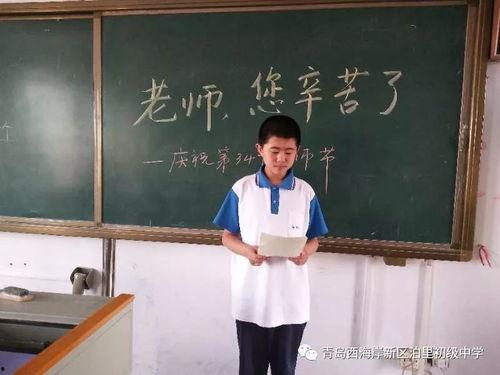 老师,您辛苦了
—庆祝第34 师节
青岛西海岸新区泊里初级中学